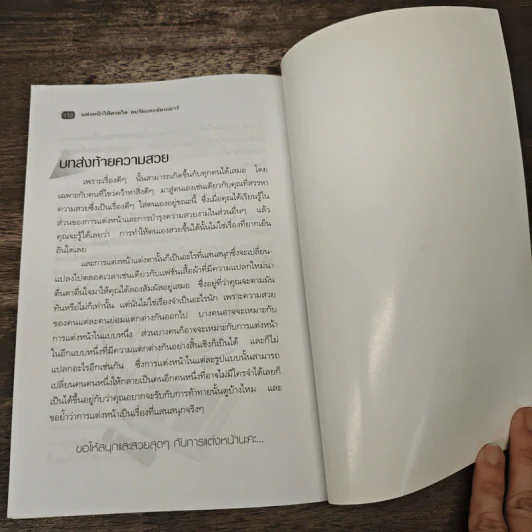 112 แต่งหน้าให้สวยใส สมวัยและอ่อนเยาว์
บทส่งท้ายความสวย
เพราะเรื่องดีๆ นั้นสามารถเกิดขึ้นกับทุกคนได้เสมอ โดย
เฉพาะกับคนที่ไขว่คว้าหาสิ่งดีๆ มาสู่ตนเองเช่นเดียวกับคุณที่สรรหา
ความสวยซึ่งเป็นเรื่องดีๆ ใส่ตนเองอยู่ขณะนี้ ซึ่งเมื่อคุณได้เรียนรู้ใน
ส่วนของการแต่งหน้าและการบำรุงความสวยงามในส่วนอื่นๆ แล้ว
คุณจะรู้ได้เลยว่า การทำให้ตนเองสวยขึ้นได้นั้นไม่ใช่เรื่องที่ยากเย็น
อันใดเลย
และการแต่งหน้าแต่งตานั้นก็เป็นอะไรที่แสนสนุกซึ่งจะเปลี่ยน-
แปลงไปตลอดเวลาเช่นเดียวกับแฟชั่นเสื้อผ้าที่มีความแปลกใหม่น่า
ตื่นตาตื่นใจมาให้คุณได้ลองสัมผัสอยู่เสมอ ซึ่งอยู่ที่ว่าคุณจะตามมัน
ทันหรือไม่ก็เท่านั้น แต่นั่นไม่ใช่เรื่องจำเป็นอะไรนัก เพราะความสวย
ของคนแต่ละคนย่อมแตกต่างกันออกไป บางคนอาจจะเหมาะกับ
การแต่งหน้าในแบบหนึ่ง ส่วนบางคนก็อาจจะเหมาะกับการแต่งหน้า
ในอีกแบบหนึ่งที่มีความแตกต่างกันอย่างสิ้นเชิงก็เป็นได้ และก็ไม่
แปลกอะไรอีกเช่นกัน ซึ่งการแต่งหน้าในแต่ละรูปแบบนั้นสามารถ
เปลี่ยนคนคนหนึ่งให้กลายเป็นคนอีกคนหนึ่งที่อาจไม่มีใครจำได้เลยก็
เป็นได้ขึ้นอยู่กับว่าคุณอยากจะรับกับการท้าทายนั้นดูบ้างไหม และ
ขอย้ำว่าการแต่งหน้าเป็นเรื่องที่แสนสนุกจริงๆ
ขอให้สนุกและสวยสุดๆ กับการแต่งหน้านะคะ...